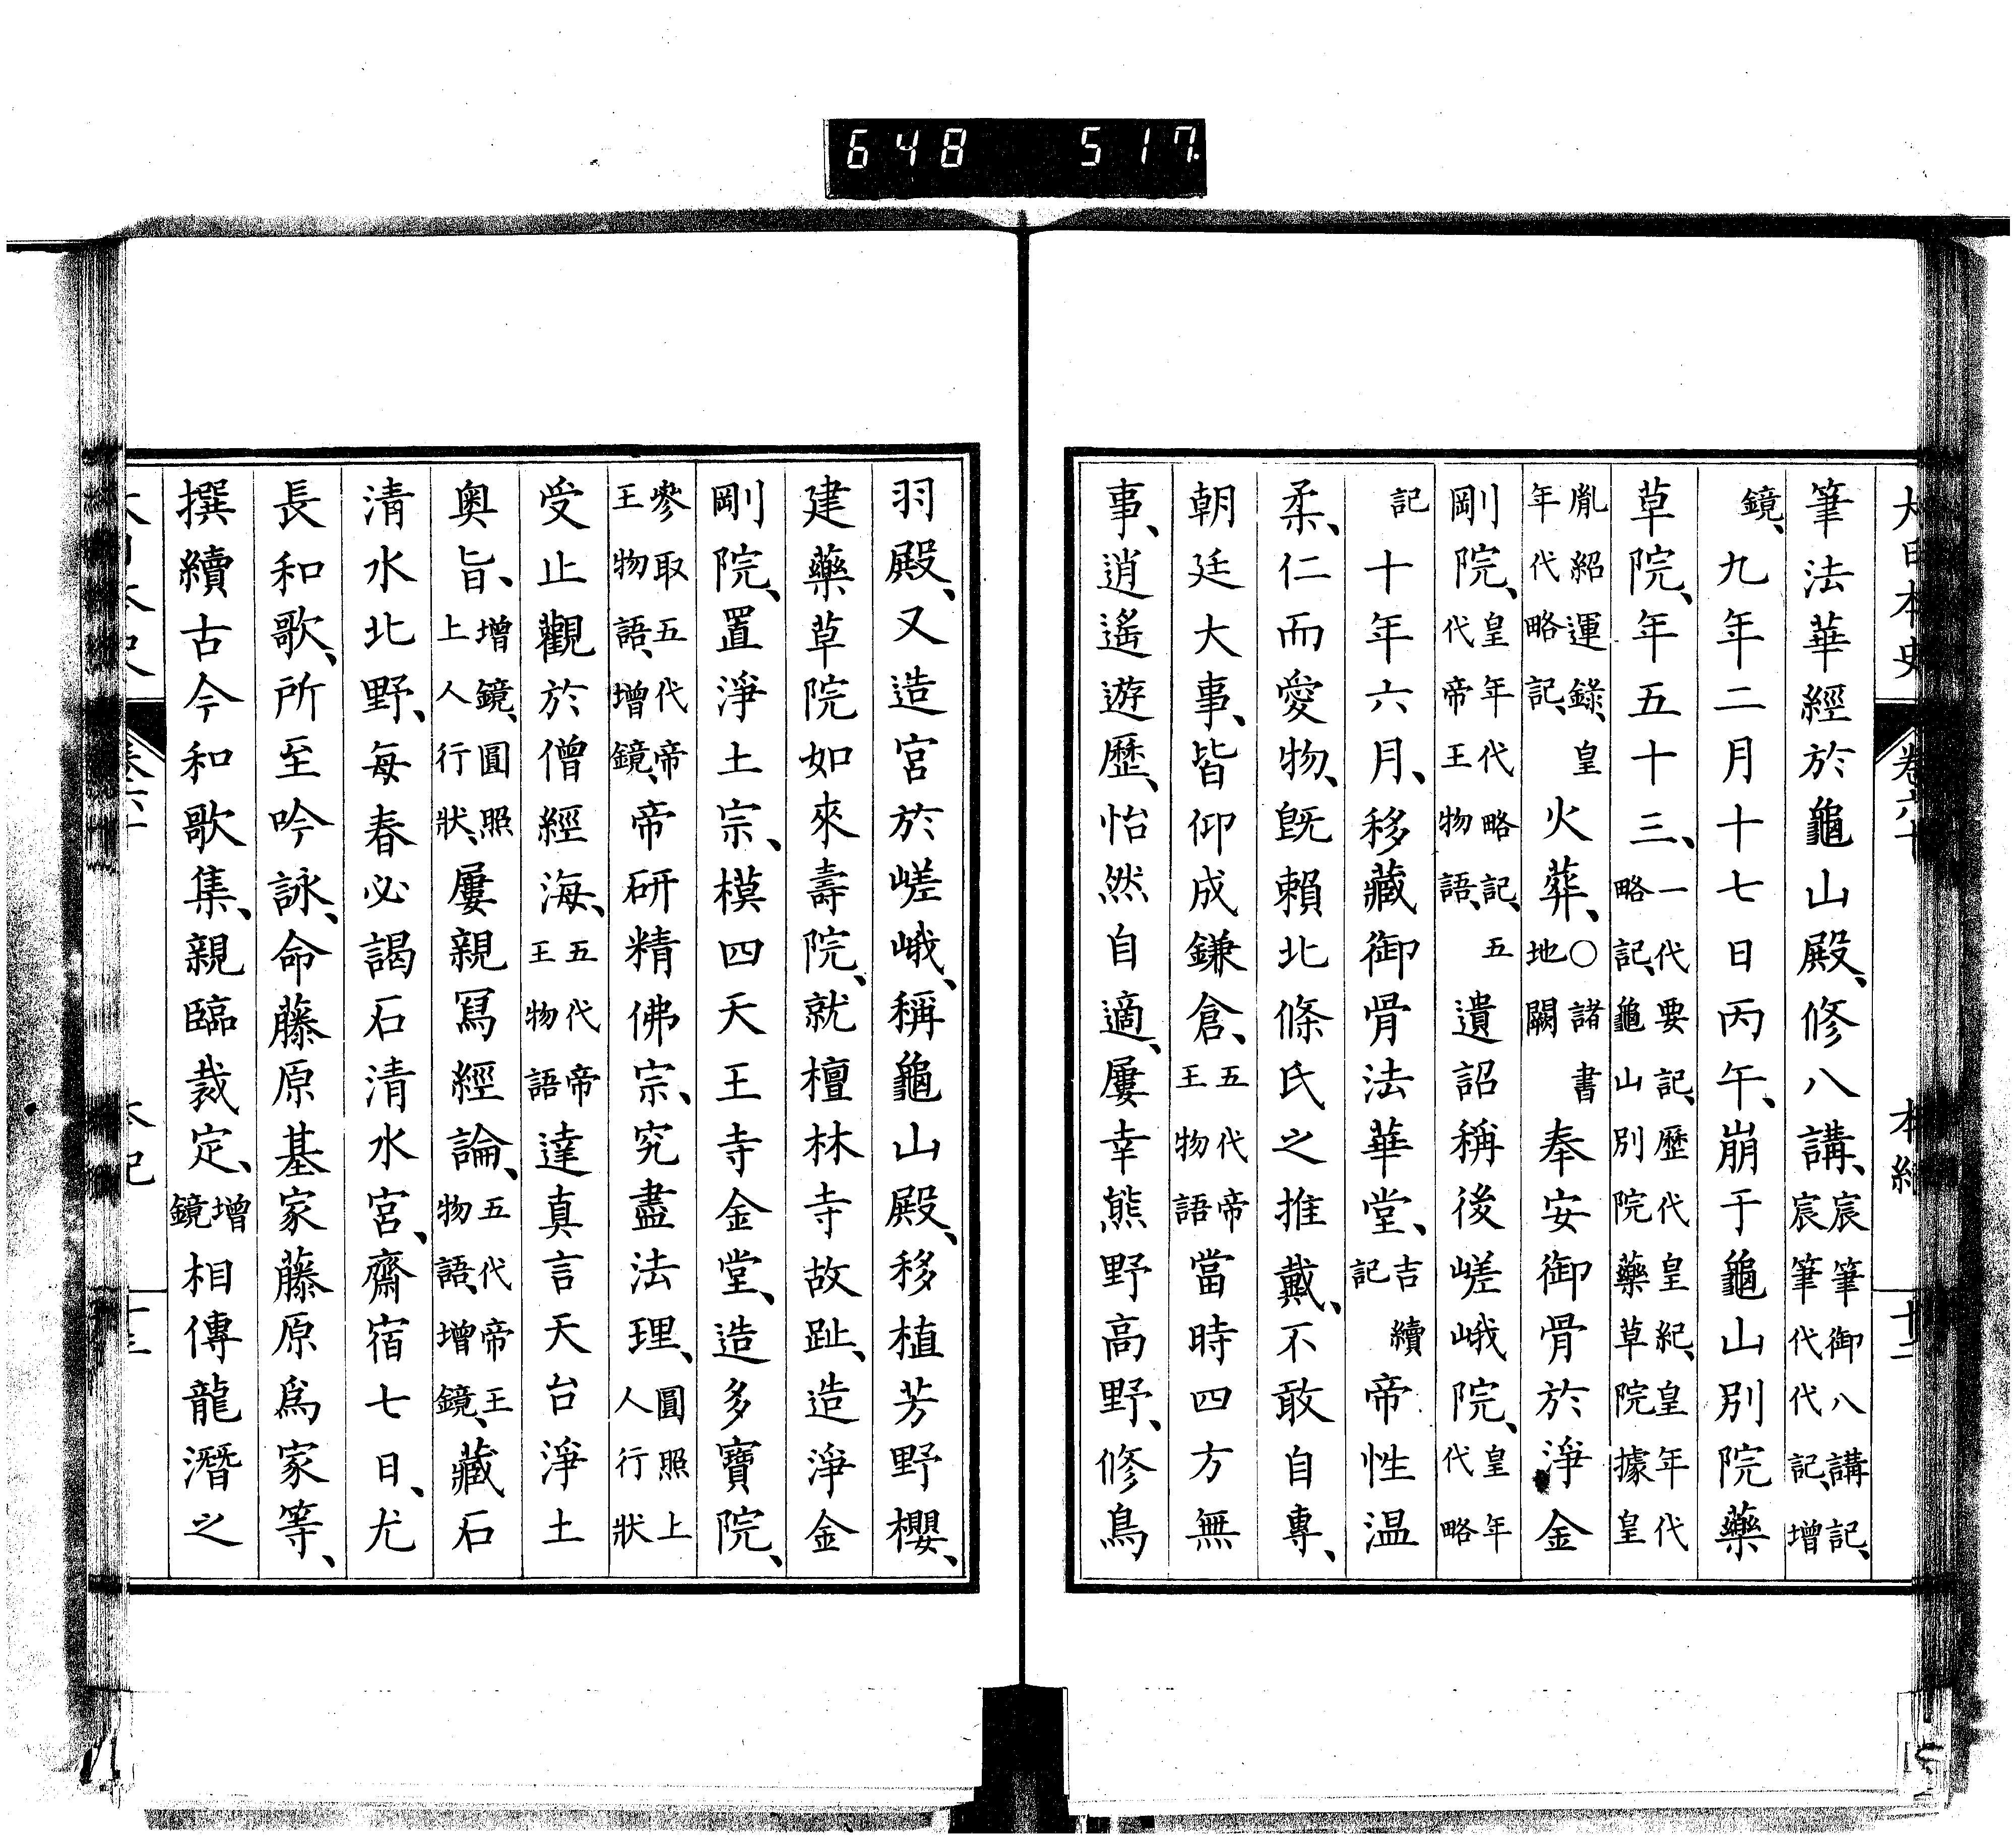 648 517
大日本史 卷六十 本紀 十二
筆法華經於龜山殿、修八講、宸筆御八講記、宸筆代代記、增
鏡、九年二月十七日丙午、崩于龜山別院藥
草院、年五十三、一代要記、歷代皇紀、皇年代略記、龜山別院藥草院據皇
胤紹運錄、皇年代略記、火葬、○諸書地闕奉安御骨於淨金
剛院、皇年代略記、五代帝王物語、遺詔稱後嵯峨院、皇年代略
記十年六月、移藏御骨法華堂、吉續記帝性温
柔、仁而愛物、既賴北條氏之推戴、不敢自專、
朝廷大事、皆仰成鎌倉、五代帝王物語當時四方無
事、逍遙遊歷、怡然自適、屢幸熊野高野、修鳥
羽殿、又造宮於嵯峨、稱龜山殿、移植芳野櫻、
建藥草院如來壽院、就檀林寺故趾、造淨金
剛院、置淨土宗、模四天王寺金堂、造多寶院、
參取五代帝王物語、增鏡、帝研精佛宗、究盡法理、圓照上人行狀
受止觀於僧經海、五代帝王物語達真言天台淨土
奧旨、增鏡、圓照上人行狀、屢親冩經論、五代帝王物語、增鏡、藏石
清水北野、每春必謁石清水宮、齋宿七日、尤
長和歌、所至吟詠、命藤原基家藤原爲家等、
撰續古今和歌集、親臨裁定、增鏡相傳龍潛之